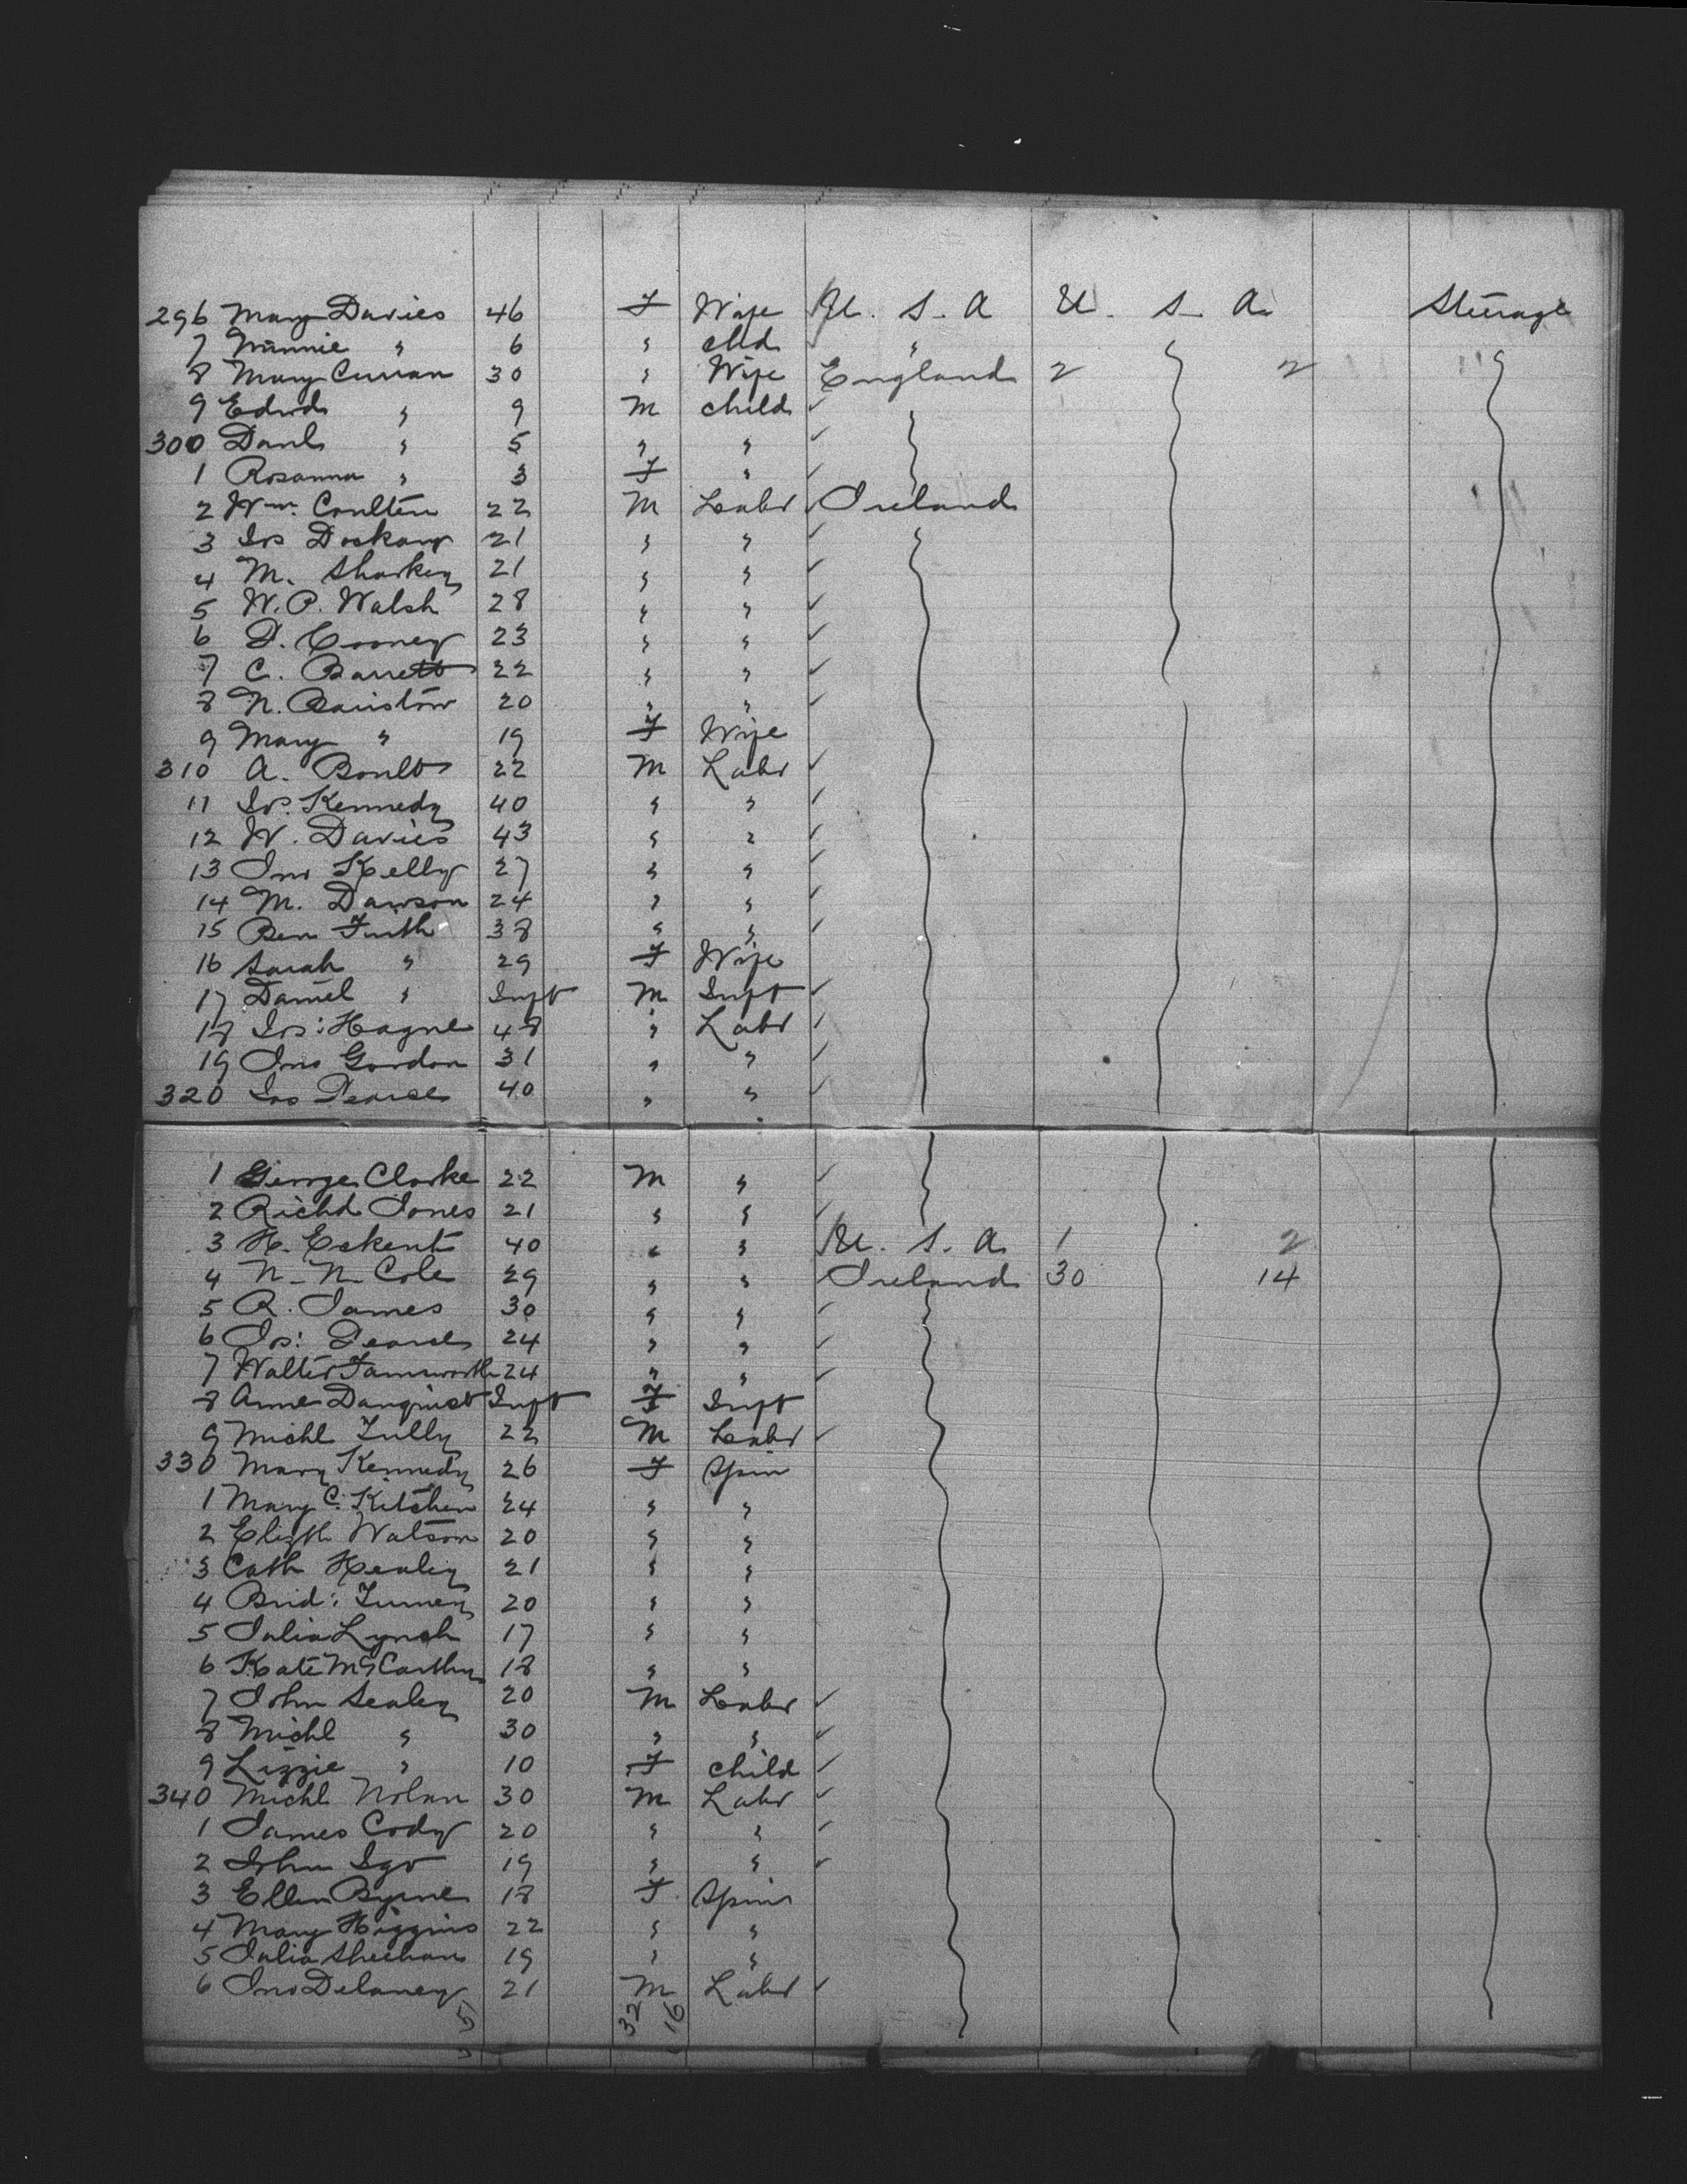 296 Mary Davies 46 F Wife U. S. A U. S. A. Steerage
7 Minnie " 6 " chld "
8 Mary Curran 30 " Wife England 2 2
9 Edwd " 9 M child ✓
300 Danl " 5 " " ✓
1 Rosanna " 3 F " ✓
2 Wm. Coulten 22 M Labr Ireland
3 Jos 21 " " ✓
4 M. Sharkey 21 " " ✓
5 W. P. Walsh 28 " " ✓
6 D. Cooney 23 " " ✓
7 C. Barrett 22 " " ✓
8 N. Bairstow 20 " " ✓
9 Mary " 19 F Wife
310 A. Boult 22 M Labr ✓
11 Jos. Kennedy 40 " " ✓
12 W. Davies 43 " " ✓
13 Jno Kelly 27 " " ✓
14 M. Dawson 24 " " ✓
15 Ben Firth 38 " " ✓
16 Sarah " 29 F Wife
17 Daniel " Inft M Inft ✓
18 Jos: Hague 48 " Labr ✓
19 Jno Gordon 31 " " ✓
320 Jas Pearce 40 " " ✓
1 George Clarke 22 M " ✓
2 Richd Jones 21 " " ✓
3 H. Eckent 40 " " U. S. A 1 2
4 N. N. Cole 29 " " Ireland 30 14
5 R. James 30 " " ✓
6 Jos: Pearce 24 " " ✓
7 Walter Tamworth 24 " " ✓
8 Anne Danquist Inft F Inft
9 Michl Tully 22 M Labr ✓
330 Mary Kennedy 26 F Spin
1 Mary C. Kitchen 24 " "
2 Elizth Watson 20 " "
3 Cath Healey 21 " "
4 Brid: 20 " "
5 Julia Lynch 17 " "
6 Kate McCarthy 18 " "
7 John Sealey 20 M Labr ✓
8 Michl " 30 " " ✓
9 Lizzie " 10 F child ✓
340 Michl Nolan 30 M Labr ✓
1 James Cody 20 " " ✓
2 John Igo 19 " " ✓
3 Ellen Byrne 18 F. Spin
4 Mary Higgins 22 " "
5 Julia Sheehan 19 " "
6 Jno Delaney 21 M Labr ✓
5 32 16